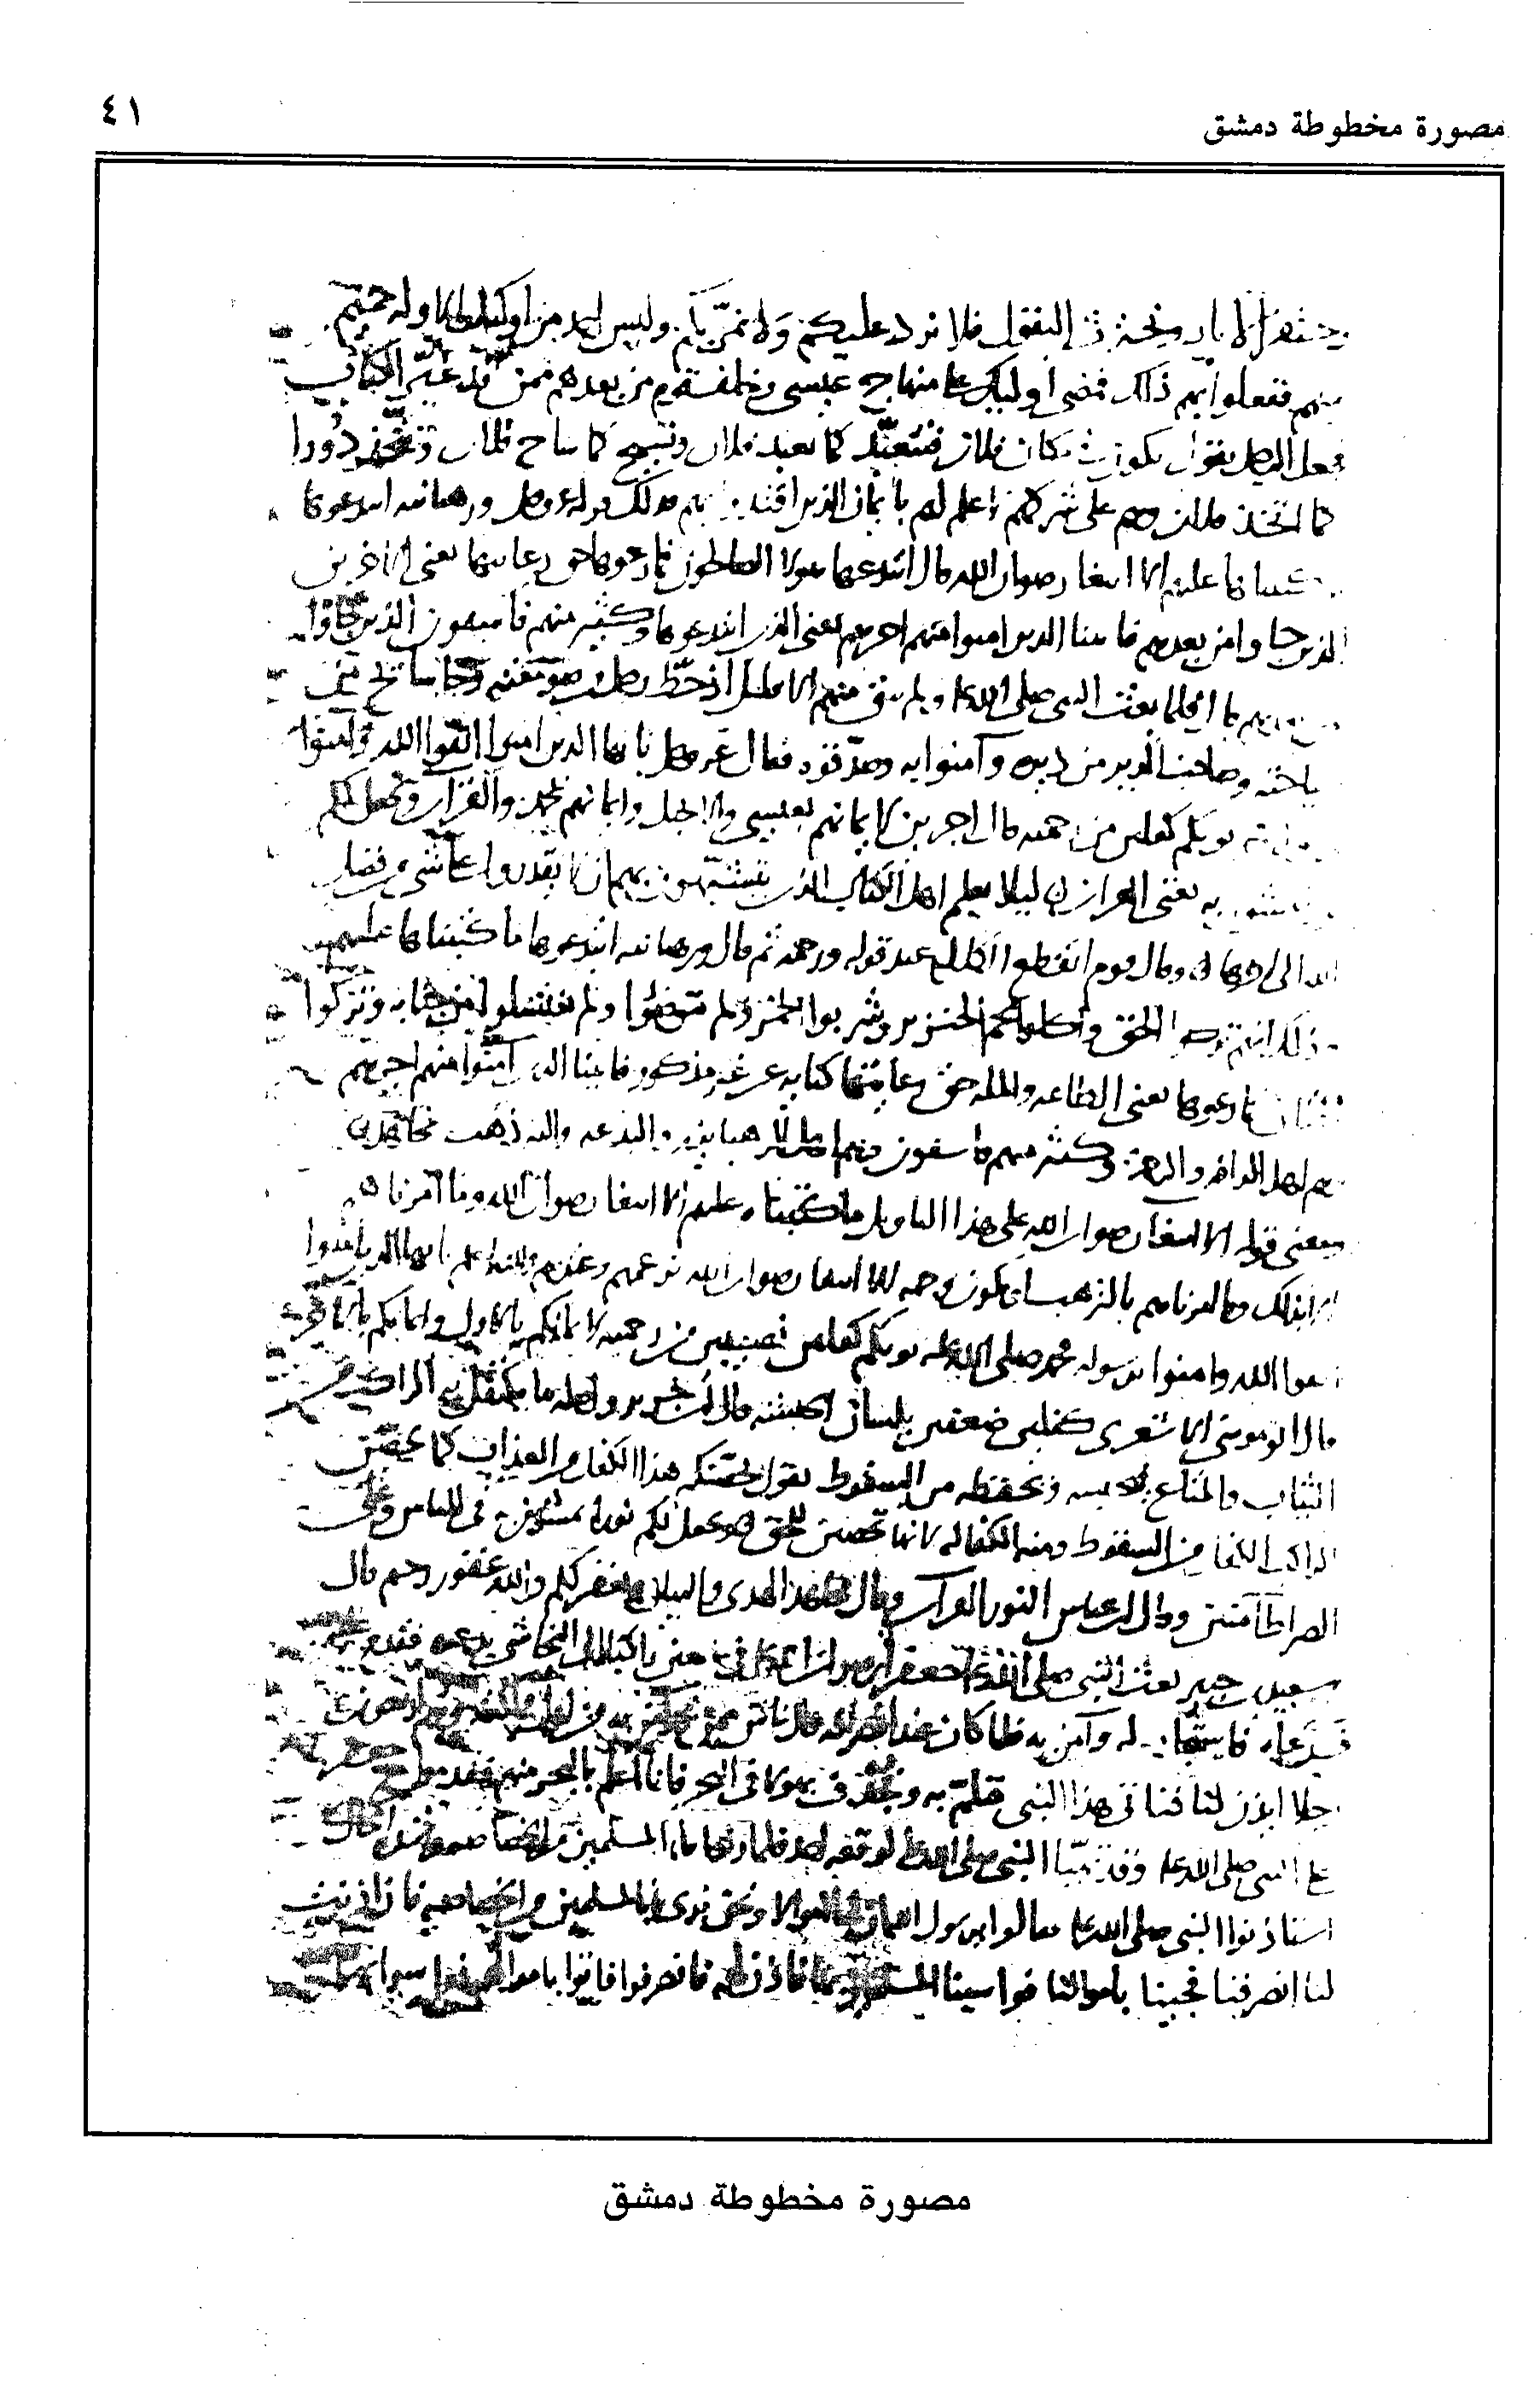 مصورة مخطوطة دمشق
٤١
الابار ونحترث البقول فلا نرد عليكم ولا نمر بكم وليس احد من اوليك الا وله حميم
منهم ففعلوا بهم ذلك فمضى اوليك على منهاج عيسى وخلف قوم من بعدهم ممن قد غير الكتاب
فجعل الرجل يقول نكون في مكان فلان فنتعبد كما تعبد فلان ونسيح كما ساح فلان ونتخذ دورا
كما اتخذ فلان وهم على شركهم لا علم لهم بايمان الذين اقتدوا بهم فذلك قوله عز وجل ورهبانيه ابتدعوها
ما كتبناها عليهم الا ابتغا رضوان الله قال ابتدعها هولا الصالحون فما رعوها حق رعايتها يعني الاخرين
الذين جاوا من بعدهم فاتينا الذين امنوا منهم اجرهم يعني الذين ابتدعوها وكثير منهم فاسقون الذين جاوا
من بعدهم قال فلما بعث النبي صلى الله عليه ولم يبق منهم الا قليل انحط رجل من صومعته وجا سايح من
سياحته وصاحب الدير من ديره وآمنوا به وصدقوه فقال عز وجل يا ايها الذين امنوا اتقوا الله وامنوا
برسوله يوتكم كفلين من رحمته قال اجرين لايمانهم بعيسى والانجيل وايمانهم بمحمد والقرآن ويجعل لكم
نورا تمشون به يعني القران ليلا يعلم اهل الكتاب الذين يتشبهون بهم ان لا يقدروا على شيء من فضل
الله الى اخرها وقال قوم انقطع الكلام عند قوله ورحمة ثم قال ورهبانيه ابتدعوها ما كتبناها عليهم
وذلك انهم تركوا الحق واكلوا لحم الخنزير وشربوا الخمر ولم يتوضوا ولم يغتسلوا من جنابه وتركوا
الختان فما رعوها يعني الطاعه والمله حق رعايتها كنايه عن غير مذكور فاتينا الذين آمنوا منهم اجرهم
وهم اهل الرافه والرحمة وكثير منهم فاسقون وهم اهل الرهبانيه والبدعه واليه ذهب مجاهد
ومعنى قوله الا ابتغا رضوان الله على هذا التاويل ما كتبناها عليهم الا ابتغا رضوان الله وما امرناهم
الا بذلك وما امرناهم بالترهب او يكون وجهه الا ابتغا رضوان الله بزعمهم وعندهم والله اعلم يا ايها الذين آمنوا
اتقوا الله وامنوا برسوله محمد صلى الله عليه يوتكم كفلين نصيبين من رحمته لايمانكم بالاول وايمانكم بالاخر
قال ابو موسى الاشعري كفلين ضعفين بلسان الحبشه قال ابن جرير واصله ما يكتفل به الراكب من
الثياب والمتاع فيحبسه ويحفظه من السقوط يقول يحصنكم هذا الكفل من العذاب كما يحصن
الراكب الكفل من السقوط ومنه الكفاله لانها تحصن للحق ويجعل لكم نورا تمشون به في الناس وعلى
الصراط آمنين وقال ابن عباس النور القرآن وقال مجاهد الهدى والبيان ويغفر لكم والله غفور رحيم قال
سعيد بن جبير بعث النبي صلى الله عليه جعفرا في سبعين راكبا الى النجاشي يدعوه فقدم عليه
فدعاه فاستجاب له وآمن به فلما كان عند انصرافه قال ناس ممن آمن به من اهل مملكته وهم اربعون
رجلا ايذن لنا فناتي هذا النبي فنلم به ونجدف بهولا في البحر فانا اعلم بالبحر منهم فقدموا مع جعفر
على النبي صلى الله عليه وقد تهيا النبي صلى الله عليه لوقعه احد فلما راوا ما بالمسلمين من الخصاصه وشدة الحال
استاذنوا النبي صلى الله عليه فقالوا يا رسول الله ان لنا اموالا ونحن نرى ما بالمسلمين من الخصاصه فان اذنت
لنا انصرفنا فجينا باموالنا فواسينا المسلمين بها فاذن لهم فانصرفوا فاتوا باموالهم فواسوا بها
مصورة مخطوطة دمشق